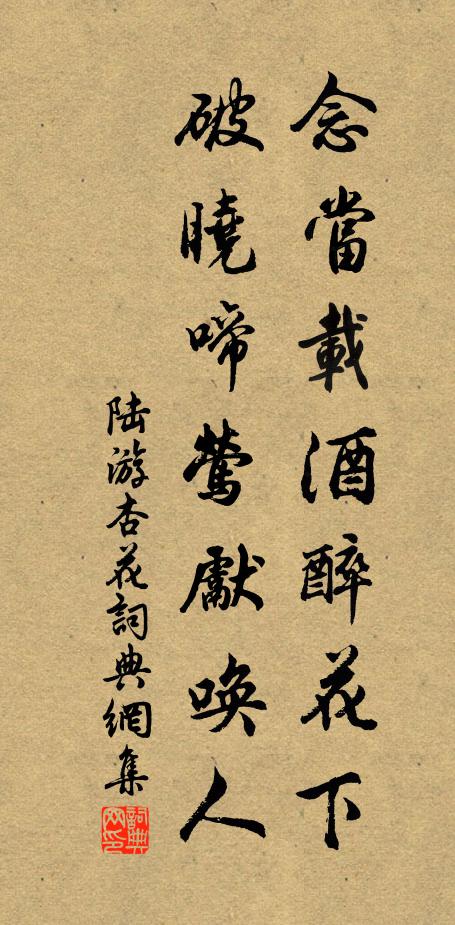 念當載酒醉花下
破曉啼鶯獻喚人
陆游杏花詞典網集
詞典網印